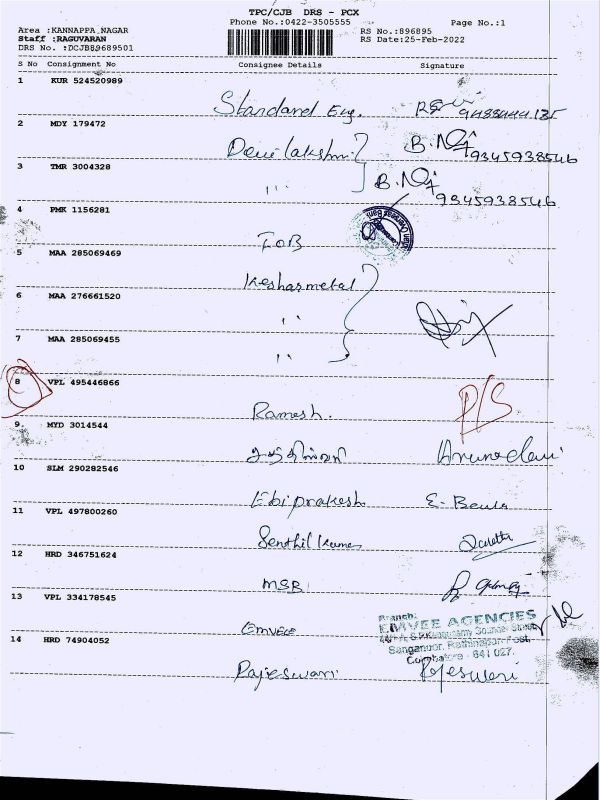 TPC/CJB DRS - PCX
Phone No.:0422-3505555
Page No.:1
Area :KANNAPPA_NAGAR
RS No.:896895
Staff :RAGUVARAN
RS Date:25-Feb-2022
DRS No. :DCJBB9689501
S No Consignment No Consignee Details Signature
1 KUR 524520989
Standard Eng. 9488444135
2 MDY 179472
Devi lakshmi B.N 9345938546
3 TMR 3004328
,, B.N 9345938546
4 PMK 1156281
IOB
5 MAA 285069469
Kesharmetal
6 MAA 276661520
,,
7 MAA 285069455
,,
8 VPL 495446866
Ramesh. D/S
9 MYD 3014544
10 SLM 290282546
Ebiprakesh E-Beula
11 VPL 497800260
Senthil Kumar
12 HRD 346751624
MSR
13 VPL 334178545
Emvee
Branch:
EMVEE AGENCIES
Sanganoor, Rathinapuri Post,
Coimbatore - 641 027.
14 HRD 74904052
Rajeswari Rajeswari